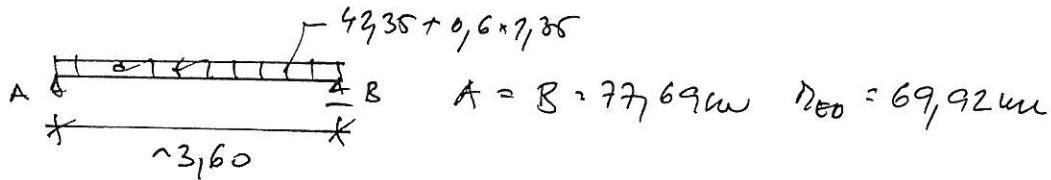 42,35 + 0,6 × 1,35
A B A = B = 77,69 kN MED = 69,92 kNm
~3,60